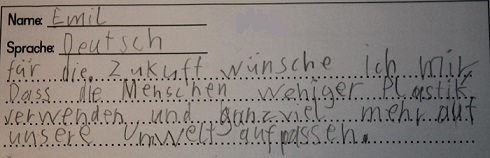 Name: Emil
Sprache: Deutsch
für die Zukuft wünsche ich mir,
Dass die Menschen weniger Plastik
verwenden und ganz viel mehr auf
unsere Umwelt aufpassen.